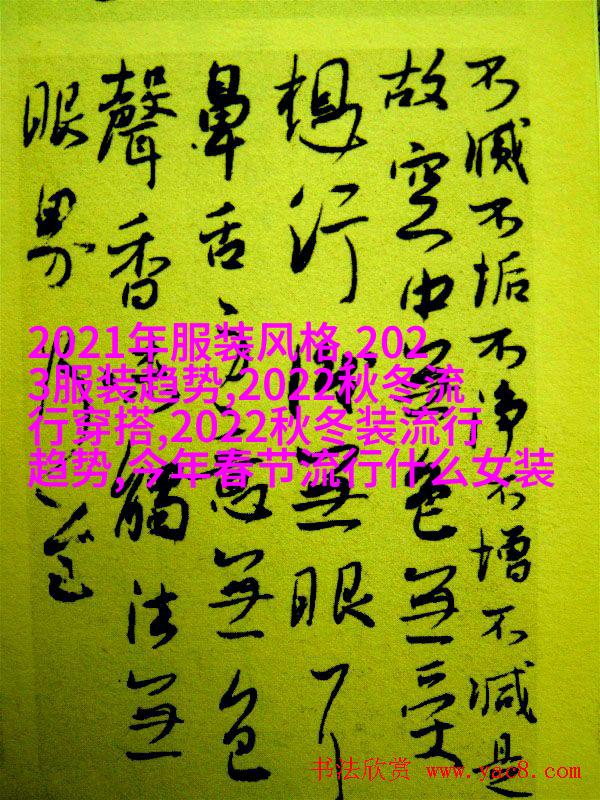 不滅不垢不净不增不減是
故空中無色無受
想行識無眼耳
鼻舌身意無色
聲香味觸法無
眼界
2021年服装风格,202
3服装趋势,2022秋冬流
行穿搭,2022秋冬装流行
趋势,今年春节流行什么女装
书法欣赏 www.yac8.com